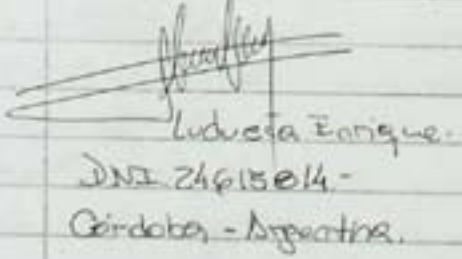 Ludueña Enrique.
DNI 24615814-
Córdoba - Argentina.